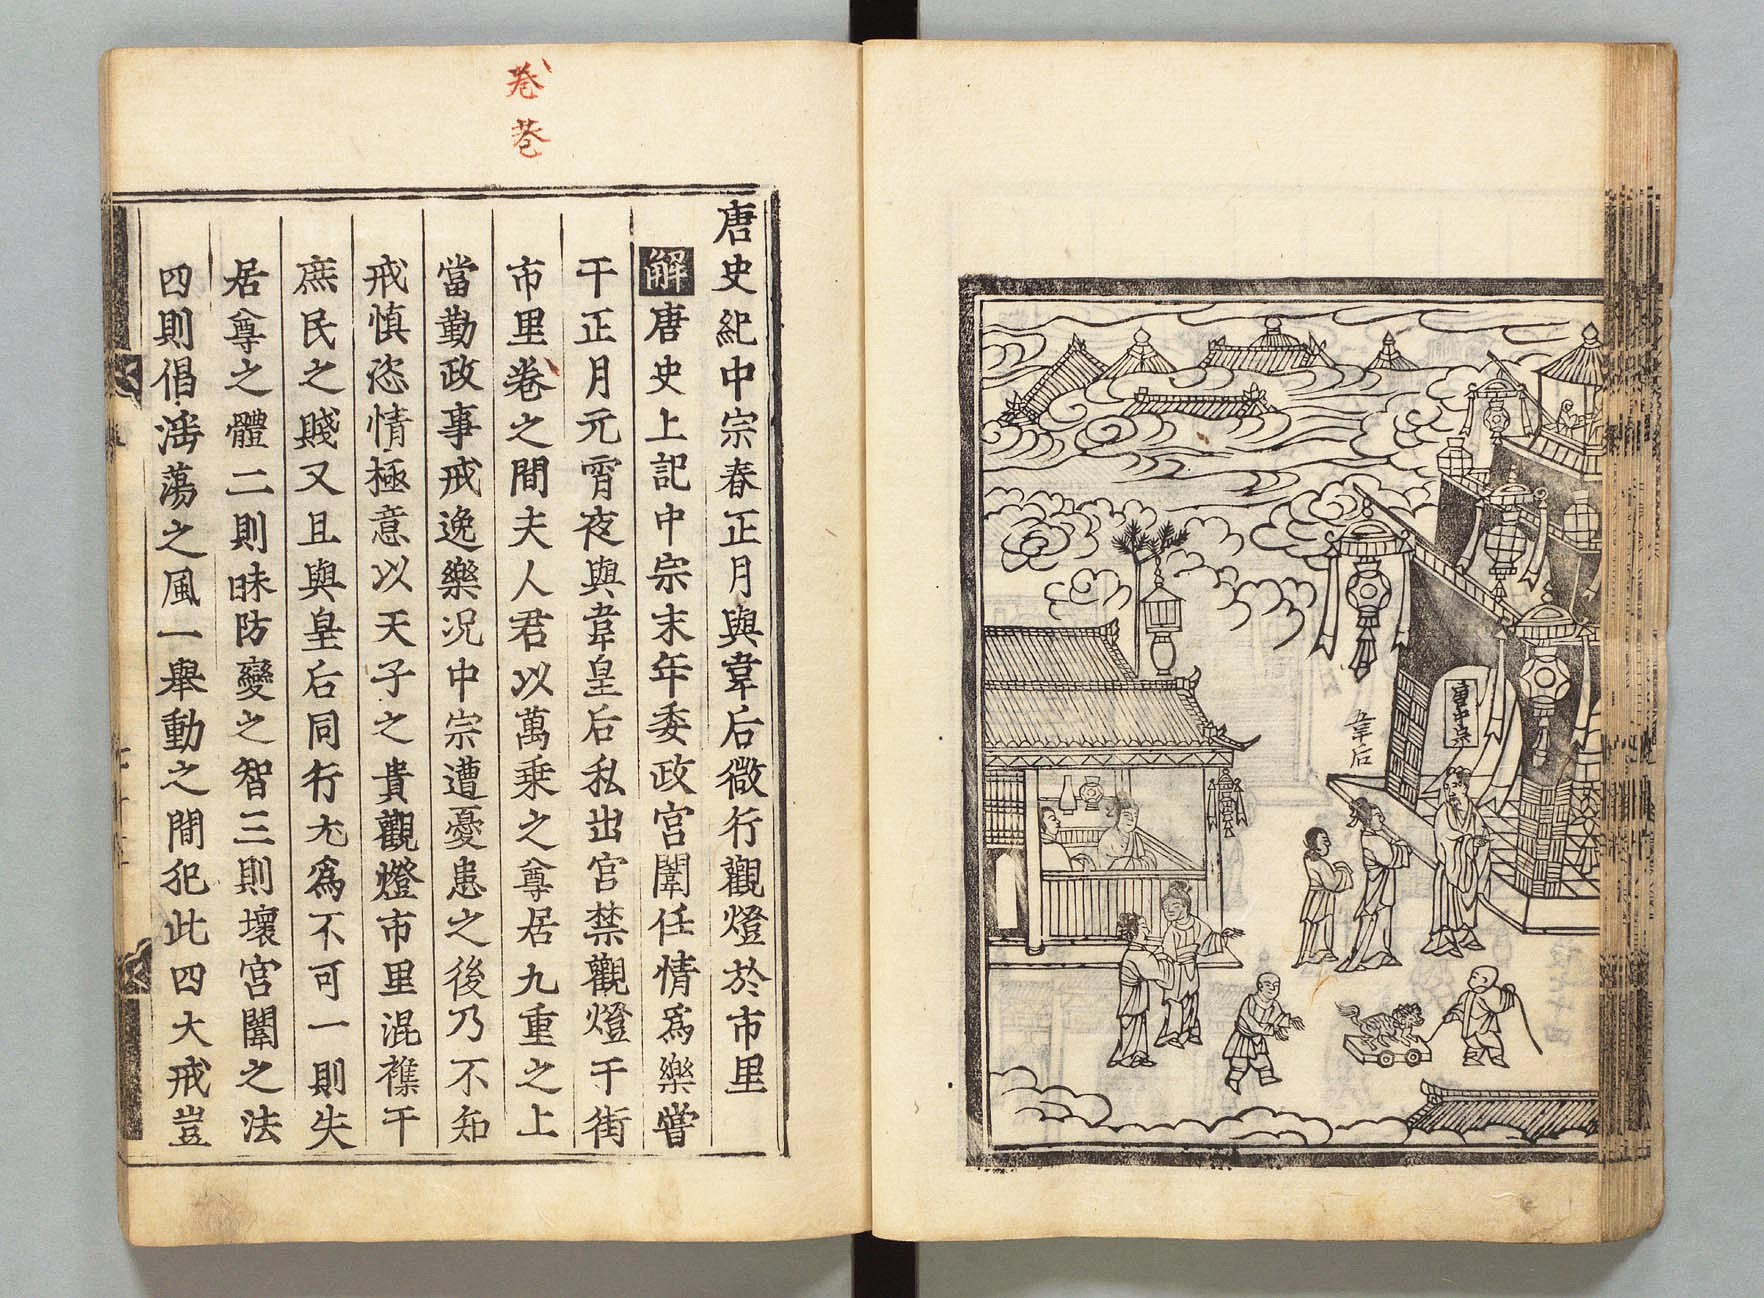 唐中宗
韋后
卷
巷
唐史紀中宗春正月與韋后微行觀燈於市里
解唐史上記中宗末年委政宮闈任情爲樂嘗
于正月元宵夜與韋皇后私出宮禁觀燈于街
市里巷之間夫人君以萬乘之尊居九重之上
當勤政事戒逸樂况中宗遭憂患之後乃不知
戒慎恣情極意以天子之貴觀燈市里混襍于
庶民之賤又且與皇后同行尢爲不可一則失
居尊之體二則昧防變之智三則壞宮闈之法
四則倡滛蕩之風一舉動之間犯此四大戒豈